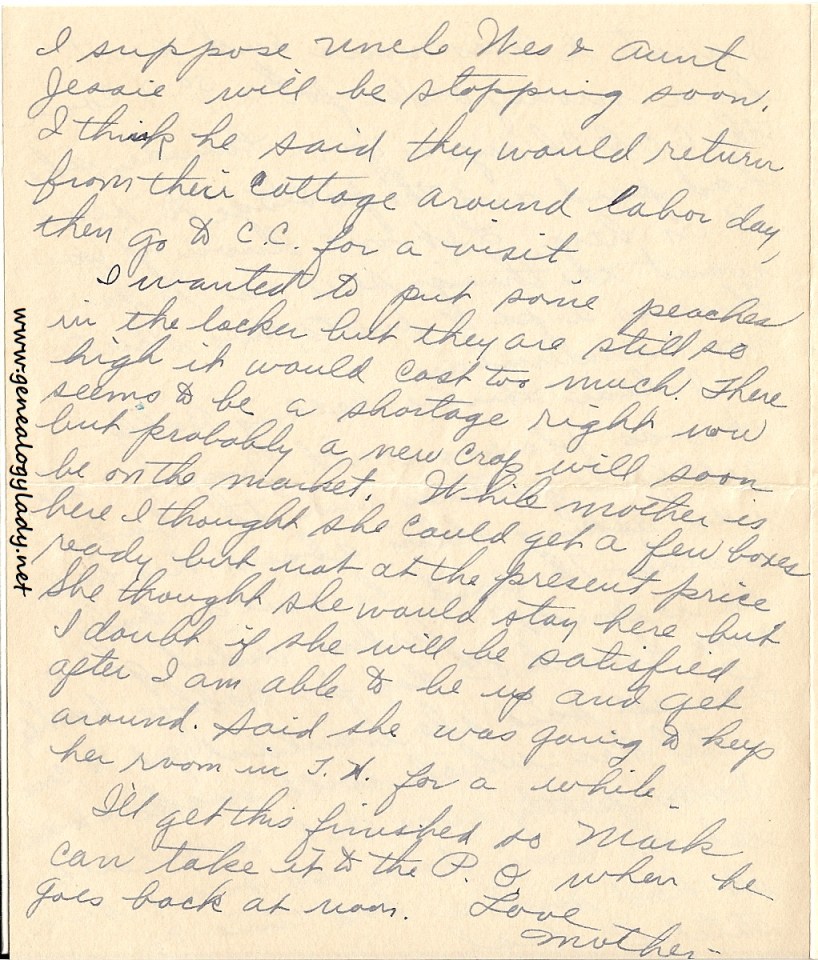 I suppose Uncle Wes & Aunt
Jessie will be stopping soon.
I think he said they would return
from their Cottage around labor day,
then go to C.C. for a visit
I wanted to put some peaches
in the locker but they are still so
high it would cost too much. There
seems to be a shortage right now
but probably a new crop will soon
be on the market. While mother is
here I thought she could get a few boxes
ready but not at the present price
She thought she would stay here but
I doubt if she will be satisfied
after I am able to be up and get
around. Said she was going to keep
her room in T.H. for a while.
I'll get this finished so Mark
can take it to the P.O. when he
goes back at noon. Love
Mother-
www.genealogylady.net